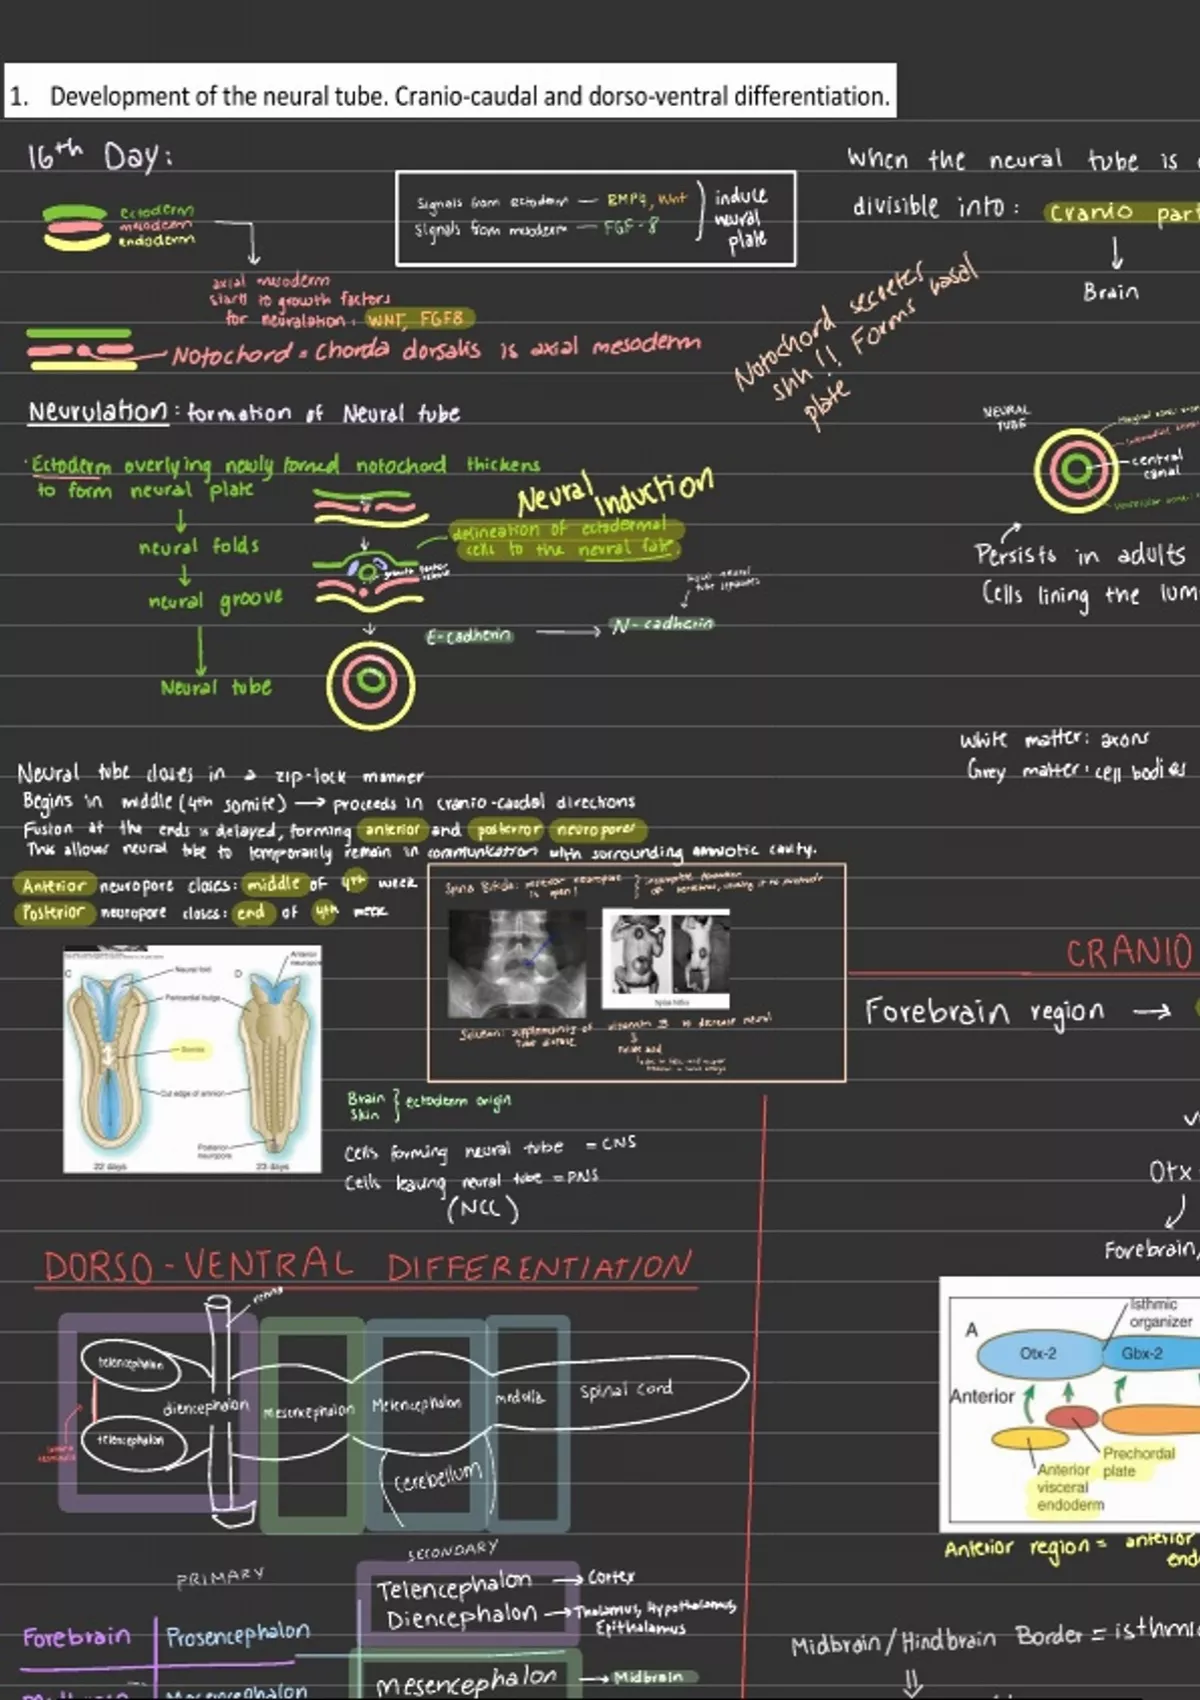 1. Development of the neural tube. Cranio-caudal and dorso-ventral differentiation.
16th Day:
ectoderm
mesoderm
endoderm
axial mesoderm
start to growth factors
for neurulation: WNT, FGF8
Notochord = chorda dorsalis is axial mesoderm
Signals from ectoderm — BMP4, Wnt
Signals from mesoderm — FGF-8
induce
neural
plate
Notochord secretes
shh!! Forms basal
plate
Neurulation: formation of Neural tube
Ectoderm overlying newly formed notochord thickens
to form neural plate
neural folds
neural groove
Neural tube
Neural induction
delineation of ectodermal
cells to the neural fate.
growth factor
release
E-cadherin → N-cadherin
Neural tube closes in a zip-lock manner
Begins in middle (4th somite) → proceeds in cranio-caudal directions
Fusion at the ends is delayed, forming anterior and posterior neuropores
This allows neural tube to temporarily remain in communication with surrounding amniotic cavity.
Anterior neuropore closes: middle of 4th week
Posterior neuropore closes: end of 4th week
Spina Bifida: posterior neuropore
is open!
Spina bifida
Solution: supplements of
to decrease neural
tube
C
D
Neural fold
Anterior
neuropore
Pericardial bulge
Somite
Cut edge of amnion
Posterior
neuropore
22 days
23 days
Brain
Skin
ectoderm origin
Cells forming neural tube = CNS
Cells leaving neural tube = PNS
(NCC)
DORSO-VENTRAL DIFFERENTIATION
telencephalon
telencephalon
diencephalon
mesencephalon
Metencephalon
medulla
Spinal cord
cerebellum
PRIMARY
SECONDARY
Telencephalon → Cortex
Diencephalon → Thalamus, Hypothalamus,
Epithalamus
Forebrain
Prosencephalon
mesencephalon → Midbrain
When the neural tube is
divisible into: cranio part
Brain
NEURAL
TUBE
central
canal
Persists in adults
Cells lining the
White matter: axons
Grey matter: cell bodies
CRANIO
Forebrain region →
Otx
Forebrain,
A
Isthmic
organizer
Otx-2
Gbx-2
Anterior
Prechordal
plate
Anterior
visceral
endoderm
Anterior region = anterior
Midbrain/Hindbrain Border =